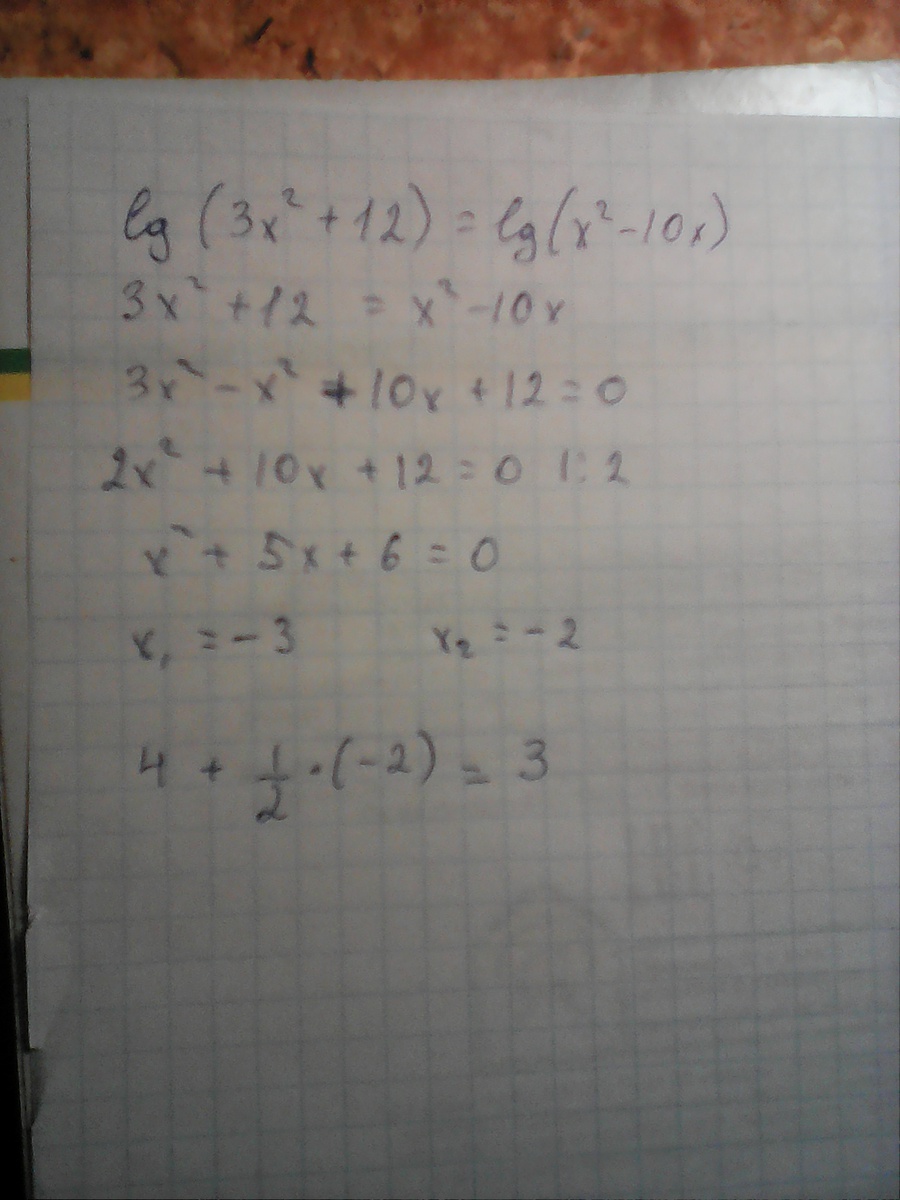 lg (3x² + 12) = lg(x² - 10x)
3x² + 12 = x² - 10x
3x² - x² + 10x + 12 = 0
2x² + 10x + 12 = 0 |: 2
x² + 5x + 6 = 0
x₁ = -3 x₂ = -2
4 + 1/2 · (-2) = 3